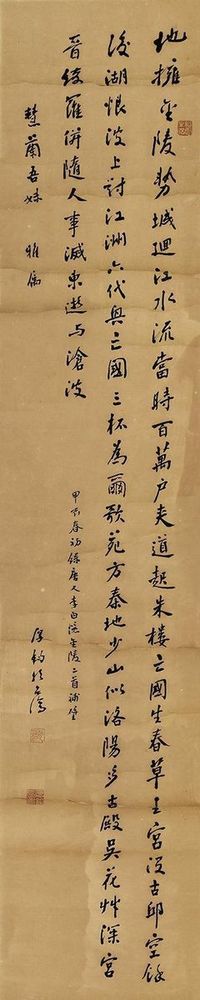 地擁金陵勢城迴江水流當時百萬戶夾道起朱樓亡國生春草王宮沒古邱空餘
後湖恨波上對江洲六代興亡國三杯為爾歌苑方秦地少山似洛陽多古殿吳花艸深宮
晉綺羅併隨人事滅東逝与滄波
慧蘭吾妹 雅屬
春初錄唐人李白詠金陵二首補壁